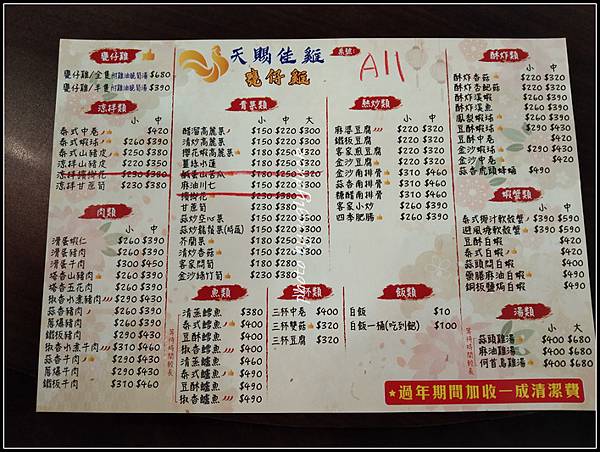 天賜佳雞
甕仔雞
桌號:
A11
甕仔雞
甕仔雞/全隻 附雞油脆筍湯 $680
甕仔雞/半隻 附雞油脆筍湯 $390
涼拌類
小 中
泰式中卷 $420
泰式蝦球 $260 $390
泰式山豬皮 $250 $380
涼拌山豬皮 $220 $350
涼拌檳榔花 $230 $380
涼拌甘蔗筍 $230 $380
肉類
小 中
滑蛋蝦仁 $260 $390
滑蛋豬肉 $260 $390
滑蛋牛肉 $300 $450
塔香山豬肉 $260 $390
塔香五花肉 $260 $390
椒香水煮豬肉 $290 $430
蒜香豬肉 $260 $390
蔥爆豬肉 $260 $390
鐵板豬肉 $290 $430
椒香水煮牛肉 $310 $460
蒜香牛肉 $290 $430
蔥爆牛肉 $290 $430
鐵板牛肉 $310 $460
青菜類
小 中 大
醋溜高麗菜 $150 $220 $300
清炒高麗菜 $150 $220 $300
櫻花蝦高麗菜 $180 $250 $320
薑絲水蓮 $150 $220 $300
鹹蛋山苦瓜 $180 $250 $320
麻油川七 $150 $220 $300
檳榔花 $230 $380
蒜炒空心菜 $150 $220 $300
蒜炒龍鬚菜(時蔬) $150 $220 $300
芥蘭菜 $180 $250 $320
清炒杏菇 $150 $220 $300
客家悶筍 $180 $280
金沙綠竹筍 $230 $380
熱炒類
小 中
麻婆豆腐 $220 $320
鐵板豆腐 $220 $320
客家煎豆腐 $220 $320
金沙豆腐 $220 $320
金沙南排骨 $310 $460
蒜香南排骨 $310 $460
糖醋南排骨 $310 $460
客家小炒 $260 $390
四季肥腸 $260 $390
酥炸類
小 中
酥炸杏菇 $220 $320
酥炸杏鮑菇 $220 $320
酥炸溪蝦 $260 $390
酥炸溪魚 $260 $390
鳳梨蝦球 $260 $390
豆酥蝦球 $290 $430
豆酥中卷 $420
金沙蝦球 $290 $430
金沙中卷 $420
蒜香虎頭蜂蛹 $450
蝦蟹類
泰式獨汁軟殼蟹 $390 $590
避風塘軟殼蟹 $390 $590
豆酥白蝦 $490
泰式白蝦 $420
蒜頭悶白蝦 $420
藥膳麻油白蝦 $490
銅板鹽焗白蝦 $490
湯類
等待時間較長
蒜頭雞湯 $400 $680
麻油雞湯 $400 $680
何首烏雞湯 $400 $680
魚類
等待時間較長
清蒸鱈魚 $380
泰式鱈魚 $400
豆酥鱈魚 $400
椒香鱈魚 $400
清蒸鱸魚 $460
泰式鱸魚 $490
豆酥鱸魚 $490
椒香鱸魚 $490
三杯類
三杯中卷 $400
三杯雙菇 $320
三杯豆腐 $320
飯類
白飯 $10
白飯一桶(吃到飽) $100
★過年期間加收一成清潔費